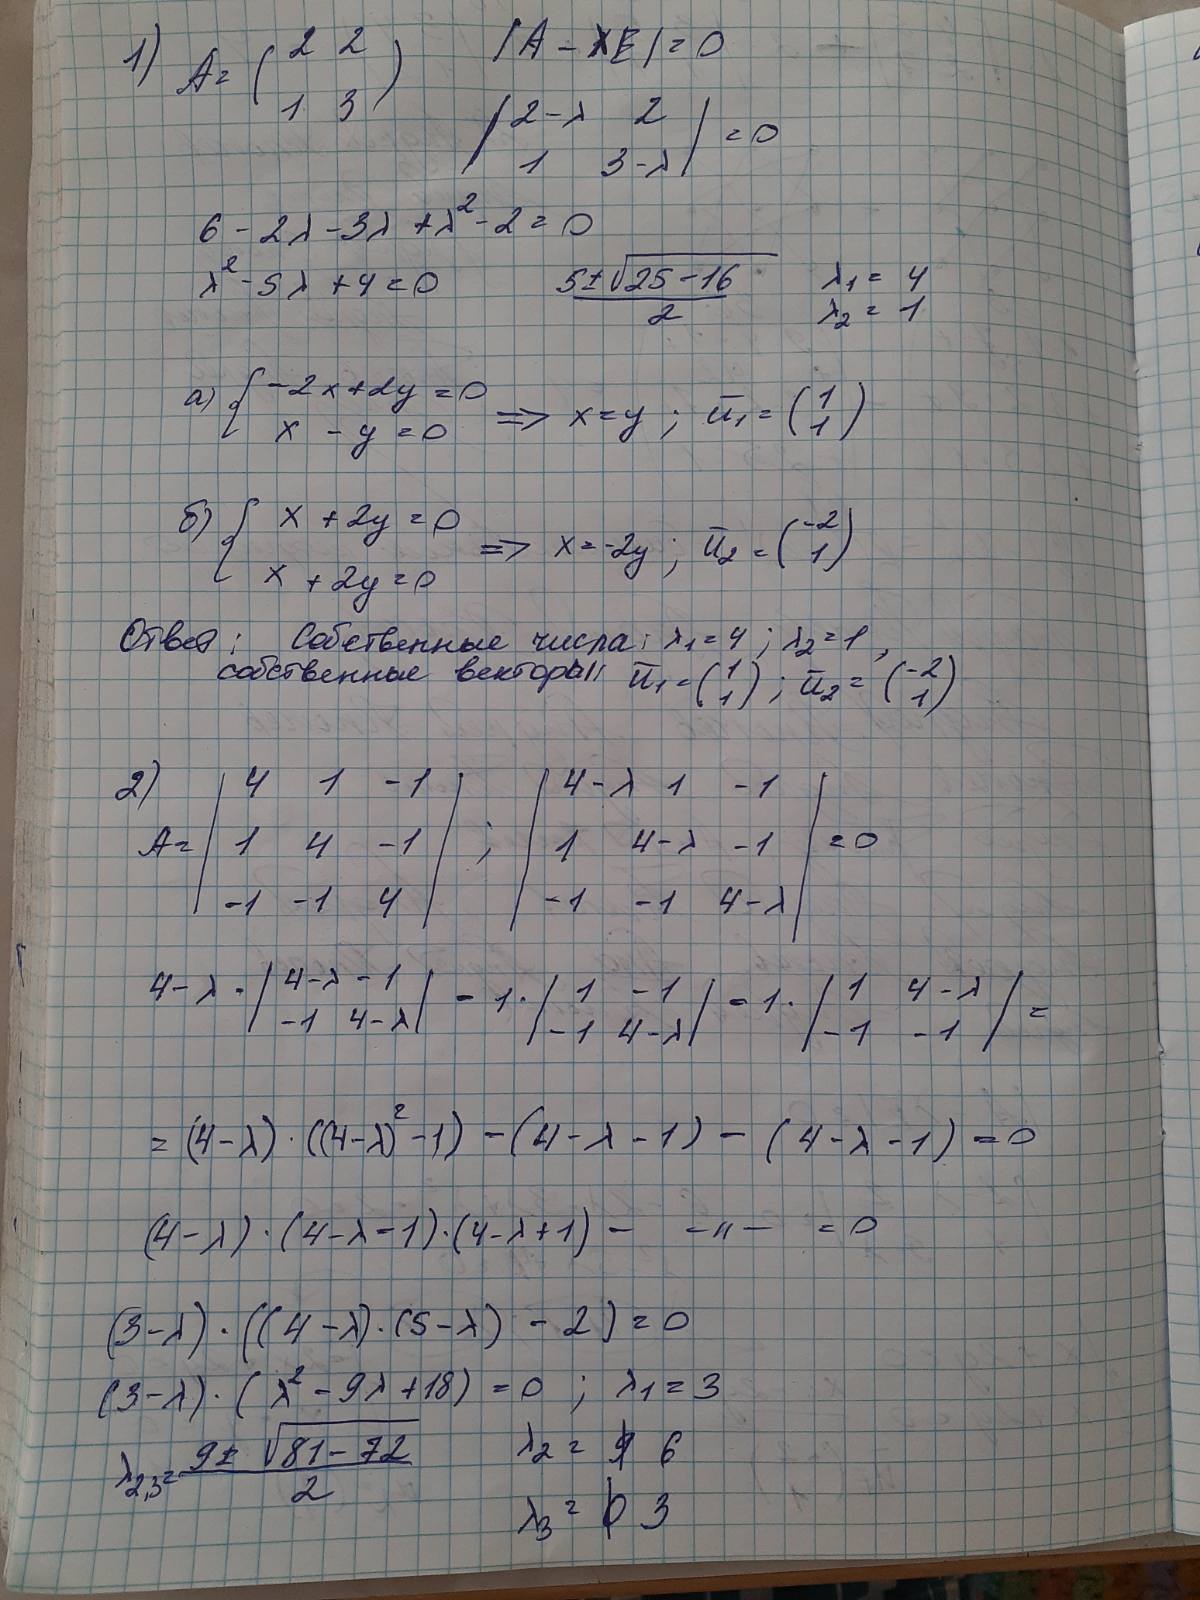 1) A = ( 2 2 1 3 ) |A - λE| = 0
| 2-λ 2 1 3-λ | = 0
6 - 2λ - 3λ + λ² - 2 = 0
λ² - 5λ + 4 = 0 5±√25-16 / 2 λ1 = 4 λ2 = 1
а) { -2x + 2y = 0 x - y = 0 => x = y ; ū1 = ( 1 1 )
б) { x + 2y = 0 x + 2y = 0 => x = -2y ; ū2 = ( -2 1 )
Ответ: Собственные числа: λ1 = 4 ; λ2 = 1 ,
собственные векторы: ū1 = ( 1 1 ) ; ū2 = ( -2 1 )
2) A = | 4 1 -1 1 4 -1 -1 -1 4 | ; | 4-λ 1 -1 1 4-λ -1 -1 -1 4-λ | = 0
4-λ · | 4-λ -1 -1 4-λ | - 1· | 1 -1 -1 4-λ | - 1· | 1 4-λ -1 -1 | =
= (4-λ) · ((4-λ)² - 1) - (4-λ-1) - (4-λ-1) = 0
(4-λ) · (4-λ-1) · (4-λ+1) - -〃- = 0
(3-λ) · ((4-λ) · (5-λ) - 2) = 0
(3-λ) · (λ² - 9λ + 18) = 0 ; λ1 = 3
λ2,3 = 9± √81-72 / 2 λ2 = 6
λ3 = 3